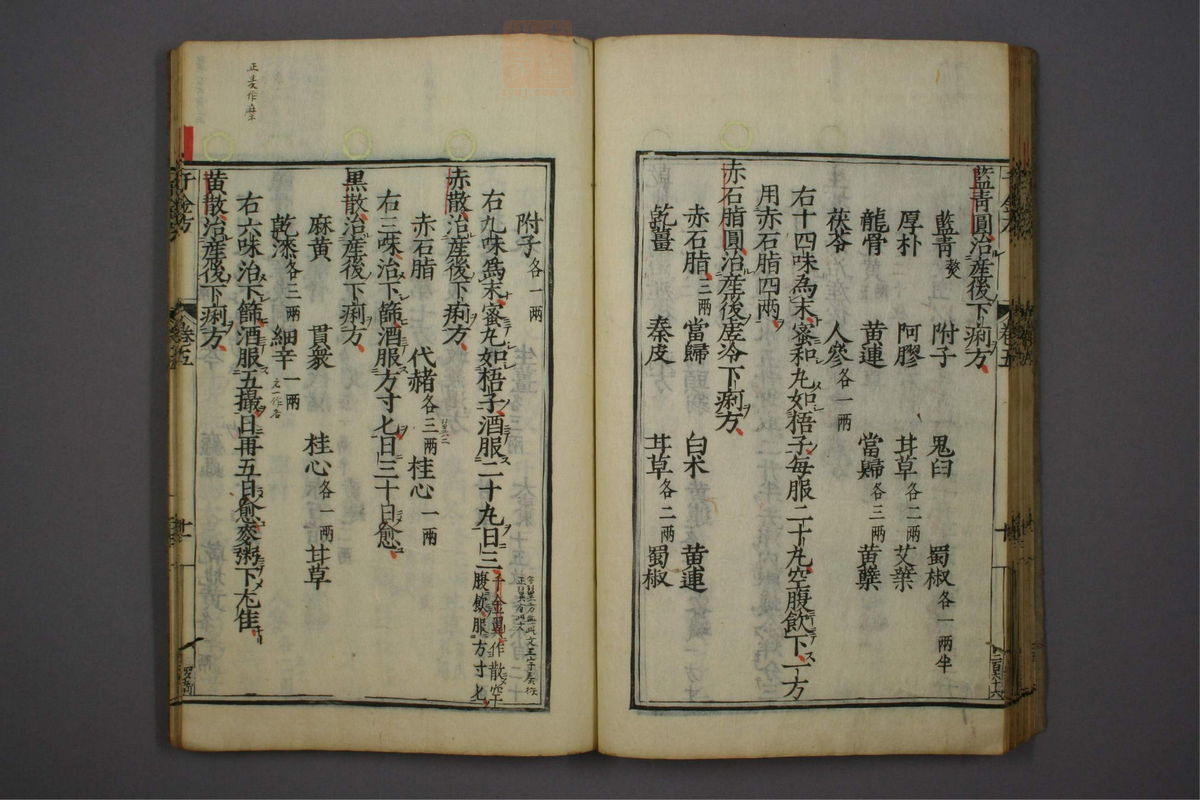 藍青圓治産後下痢方
藍青熬 附子 鬼臼 蜀椒各一兩半
厚朴 阿膠 甘草各二兩 艾葉
龍骨 黄連 當歸各三兩 黄蘗
茯苓 人參各一兩
右十四味為末蜜和丸如梧子每服二十丸空腹飲下一方
用赤石脂四兩
赤石脂圓治産後虚冷下痢方
赤石脂三兩 當歸 白术 黄連
乾薑 秦皮 甘草各二兩 蜀椒
附子各一兩
右九味為末蜜丸如梧子酒服二十丸日三千金翼作散空腹飲服方寸匕
赤散治産後下痢方
赤石脂 代赭各三兩 桂心一兩
右三味治下篩酒服方寸匕日三十日愈
黒散治産後下痢方
麻黄 貫衆 桂心各一兩 甘草
乾漆各三兩 細辛一兩
右六味治下篩酒服五撮日再五日愈麥粥下尤佳
黄散治産後下痢方
千金方 卷五
二百六十六